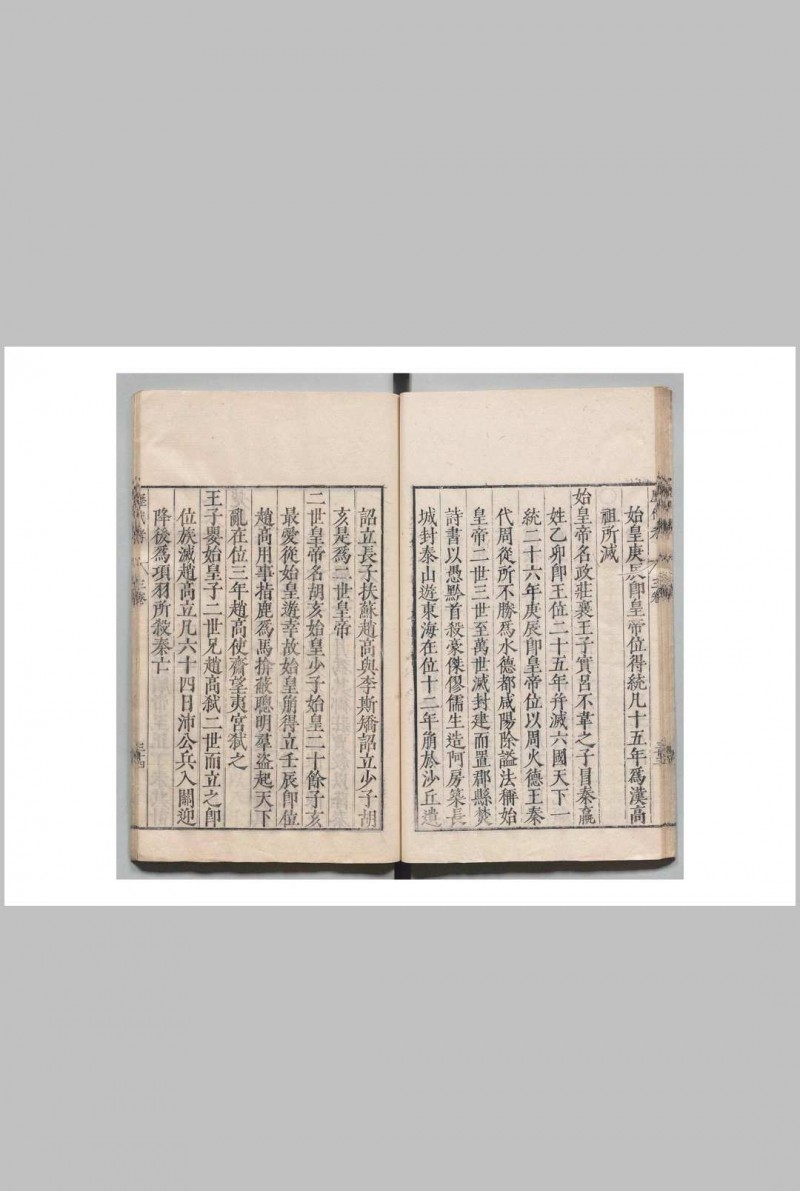 始皇庚辰卽皇帝位得統凡十五年爲漢高
祖所滅
始皇帝名政莊襄王子實呂不韋之子冒秦嬴
姓乙卯卽王位二十五年幷滅六國天下一
統二十六年庚辰卽皇帝位以周火德王秦
代周從所不勝爲水德都咸陽除謚法稱始
皇帝二世三世至萬世滅封建而置郡縣焚
詩書以愚黔首殺豪傑僇儒生造阿房築長
城封泰山遊東海在位十二年崩於沙丘遺
詔立長子扶蘇趙高與李斯矯詔立少子胡
亥是爲二世皇帝
二世皇帝名胡亥始皇少子始皇二十餘子亥
最愛從始皇遊幸故始皇崩得立壬辰卽位
趙高用事指鹿爲馬揜蔽聰明羣盜起天下
亂在位三年趙高使齋望夷宮弑之
王子嬰始皇子二世兄趙高弑二世而立之卽
位族滅趙高立凡六十四日沛公兵入關迎
降後爲項羽所殺秦亡
歷代
三卷
三十四